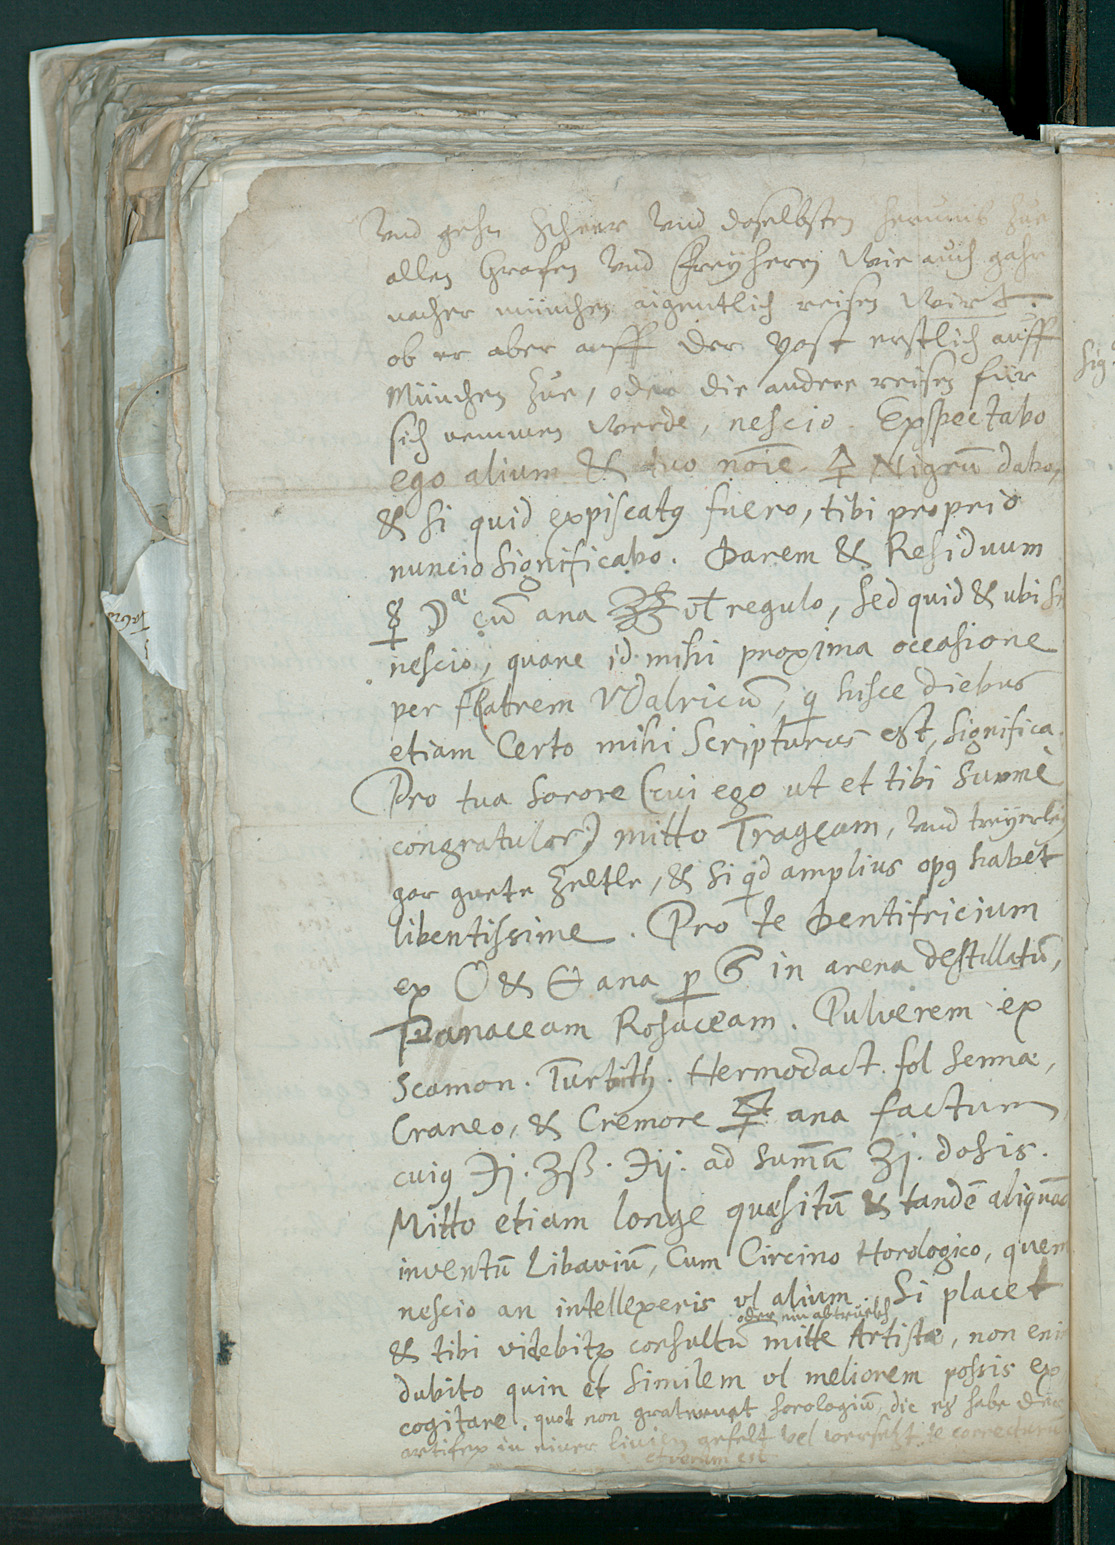 Vnd gehn Scheer Vnd doselbsten herumb zue
allen Grafen Vnd Freyherrn Wie auch gahr
nacher münchen aigentlich reisen Wirt.
ob er aber auff der Post erstlich auff
München zue, oder die andere reisen für
sich nemmen Werde, nescio. Exspectabo
ego alium & tuo noīe 🜍 Nigrū dabo,
& si quid expiscatꝰ fuero, tibi proprio
nuncio significabo. Darem & Residuum
☽ cū ana ut regulo, sed quid & ubi
nescio, quare id mihi proxima occasione
per Fratrem Vdalricū, q hisce diebus
etiam certo mihi Scripturus est, significa.
Pro tua Sorore (cui ego ut et tibi summè
congratulor) mitto Trageam, Vnd treyerley
gar guete Zeltle, & si qd amplius opꝰ habet
libentissime. Pro te Dentifricium
ex & ana p in arena destillatū,
Panaceam Rosaceam. Pulverem ex
Scamon. Turbith. Hermodact. fol sennæ,
Craneo, & Cremore ana factum
cuiꝰ ℈j. ʒß. ℈ij. ad sumū ʒj. dosis.
Mitto etiam longe quæsitū & tandē aliquādo
inventū Libaviū, Cum Circino Horologico, quem
nescio an intellexeris vl alium. Si placet
oder ein abtruckh
& tibi videbitr consultū mitte Artistæ, non eni
dubito quin et similem vl meliorem possis ex
cogitare. quod non horologiū, die es habe der
artifex in einer linien gefelt vel versehlt, te correcturū
et verum est